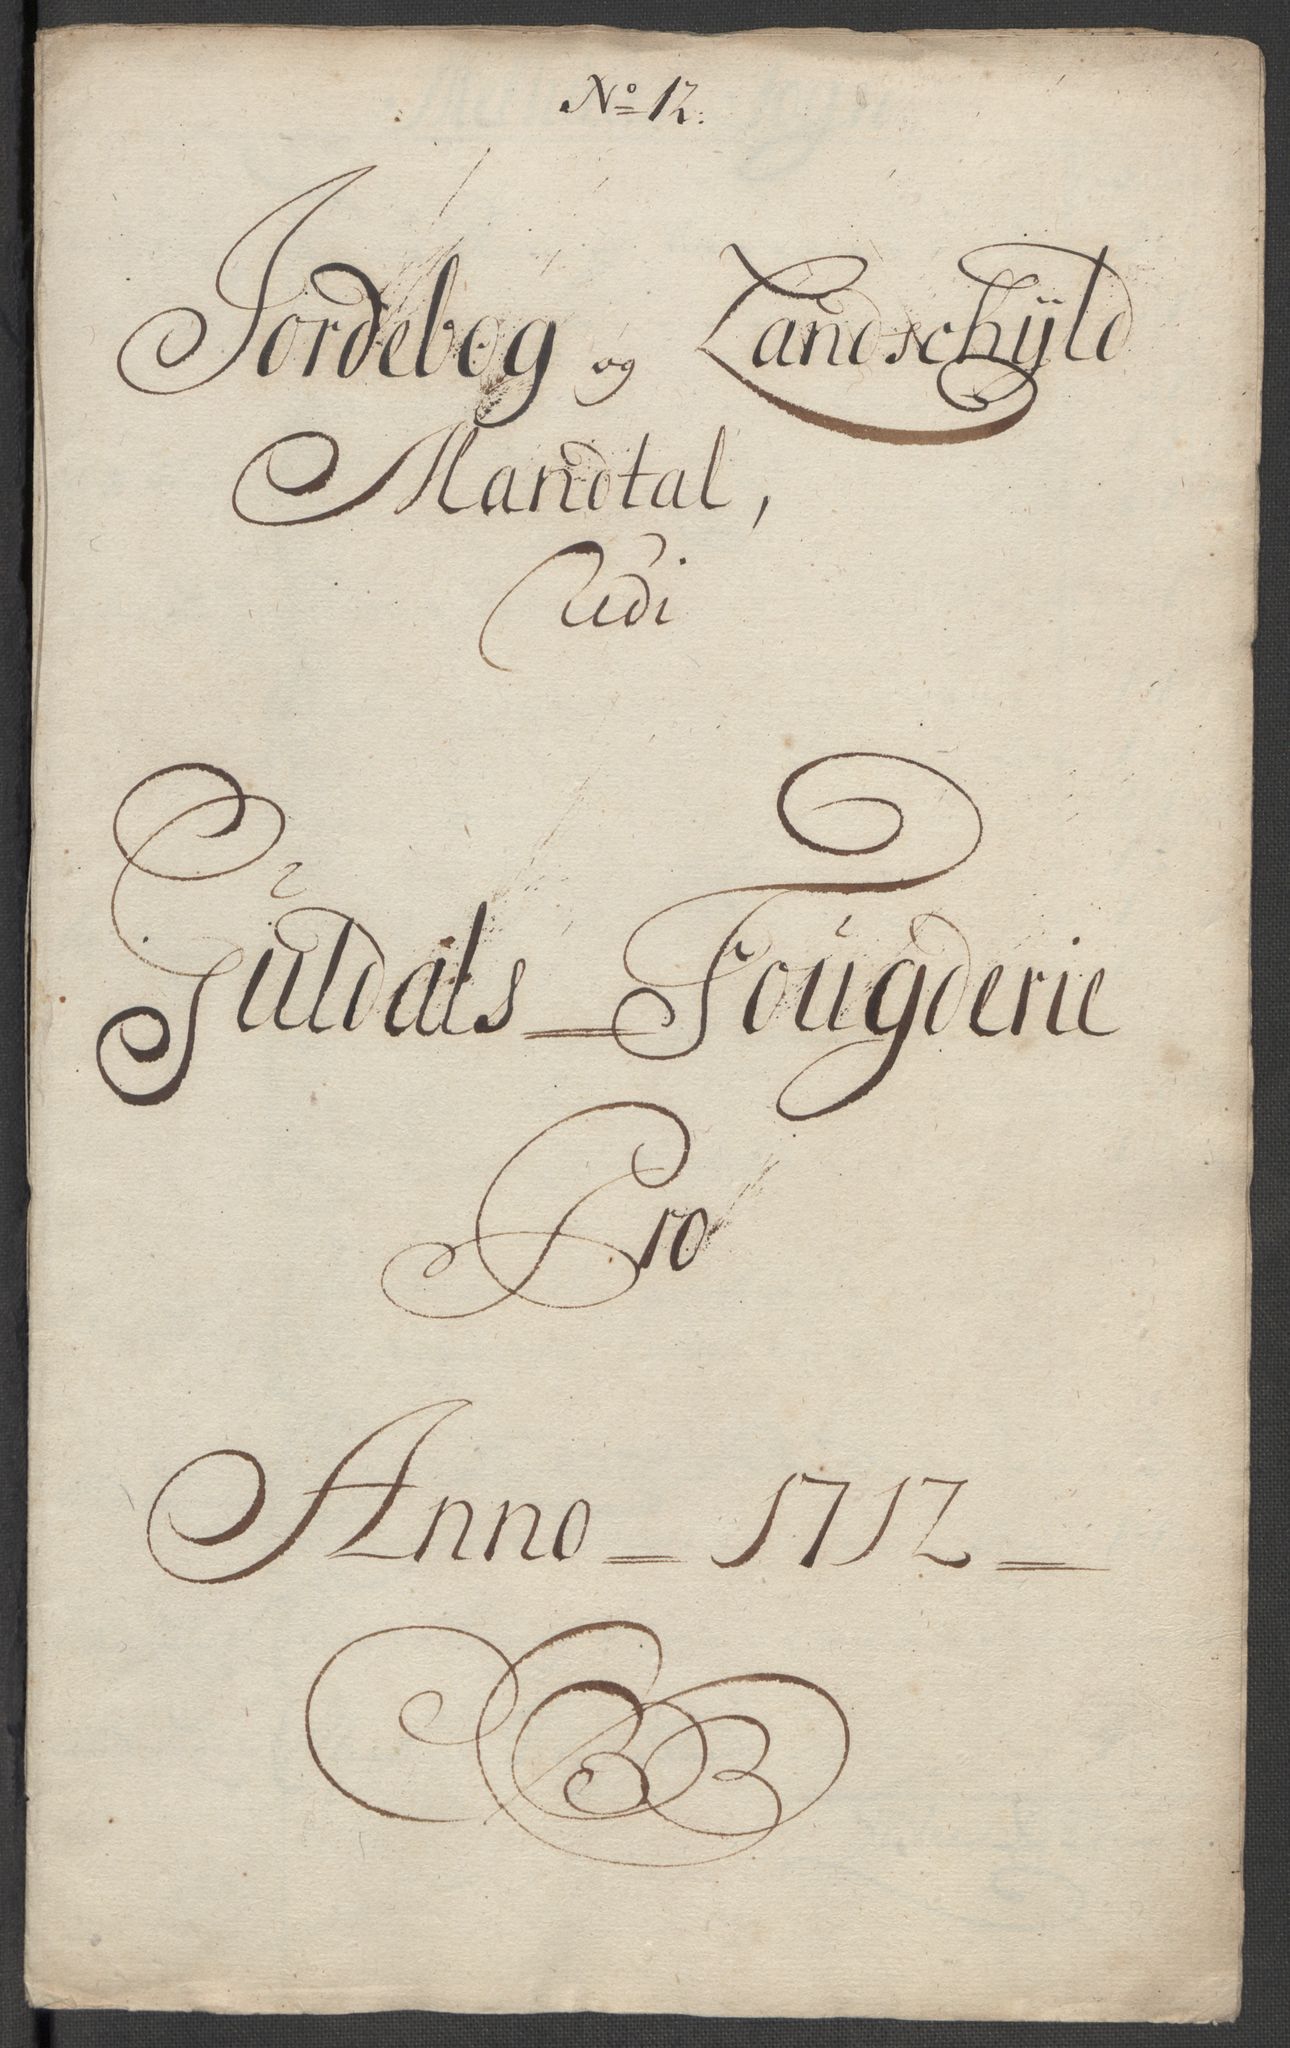 No 12.
Jordebog og Landschÿld
Mandtal,
Udi
Guldals Fougderie
Pro
Anno 1712